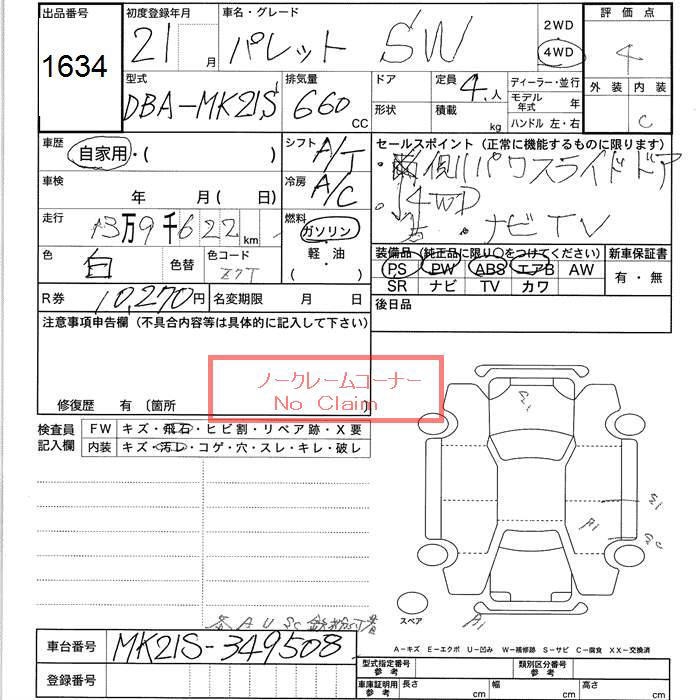 出品番号
1634
初度登録年月
21 月
車名・グレード
パレット SW
2WD
4WD
評価点
4
外装 内装
C
型式
DBA-MK21S
排気量
660 CC
ドア
形状
定員
4 人
積載
kg
ディーラー・並行
モデル年式 年
ハンドル 左・右
車歴
自家用・( )
シフト
A/T
セールスポイント(正常に機能するものに限ります)
側パワスライドドア
4WD
ナビTV
車検
年 月( 日)
冷房
A/C
走行
13万9千622km
燃料
ガソリン
軽・油
( )
色
白
色替
色コード
Z7T
装備品(純正品に限り○をつけてください)
PS PW ABS エアB AW
SR ナビ TV カワ
新車保証書
有・無
R券
10,270円
名変期限 月 日
後日品
注意事項申告欄(不具合内容等は具体的に記入して下さい)
ノークレームコーナー
No Claim
修復歴 有〔箇所
検査員記入欄
FW キズ・飛石・ヒビ割・リペア跡・X要
内装 キズ・汚レ・コゲ・穴・スレ・キレ・破レ
スペア
A1
A1
各AUSC鉄粉付着
A-キズ E-エクボ U-凹み W-補修跡 S-サビ C-腐食 XX-交換済
車台番号
MK21S-349508
登録番号
型式指定番号
参考
類別区分番号
参考
車庫証明用
参考
長さ cm
幅 cm
高さ cm